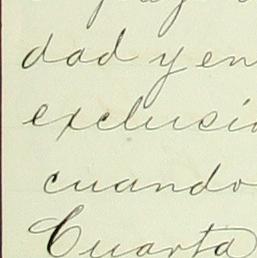 dad y en
exclusi
cuando
Cuarta